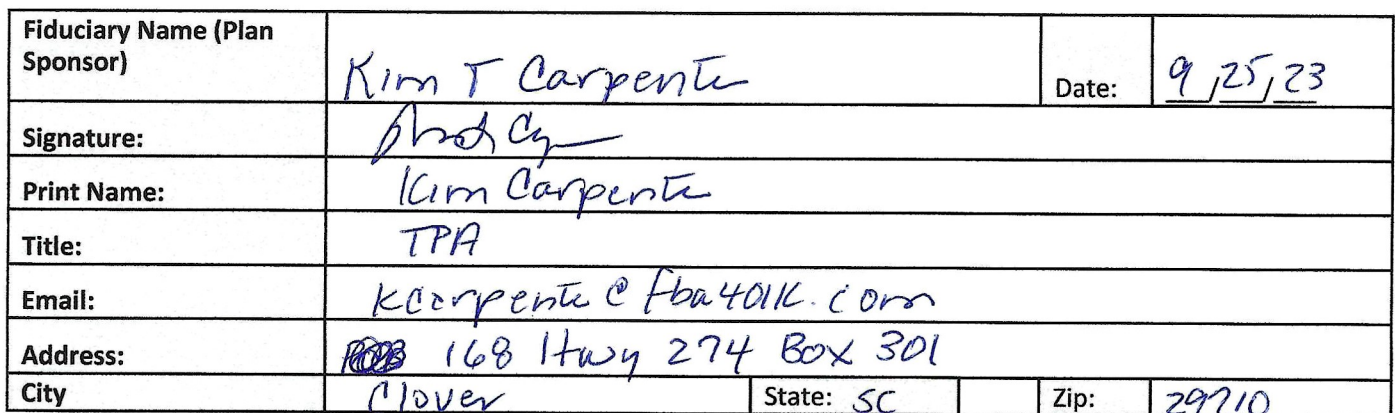 Fiduciary Name (Plan Sponsor) Kim T Carpenter Date: 9/25/23
Signature:
Print Name: Kim Carpenter
Title: TPA
Email: kcarpenter@fba401k.com
Address: 168 Hwy 274 Box 301
City Clover State: SC Zip: 29710